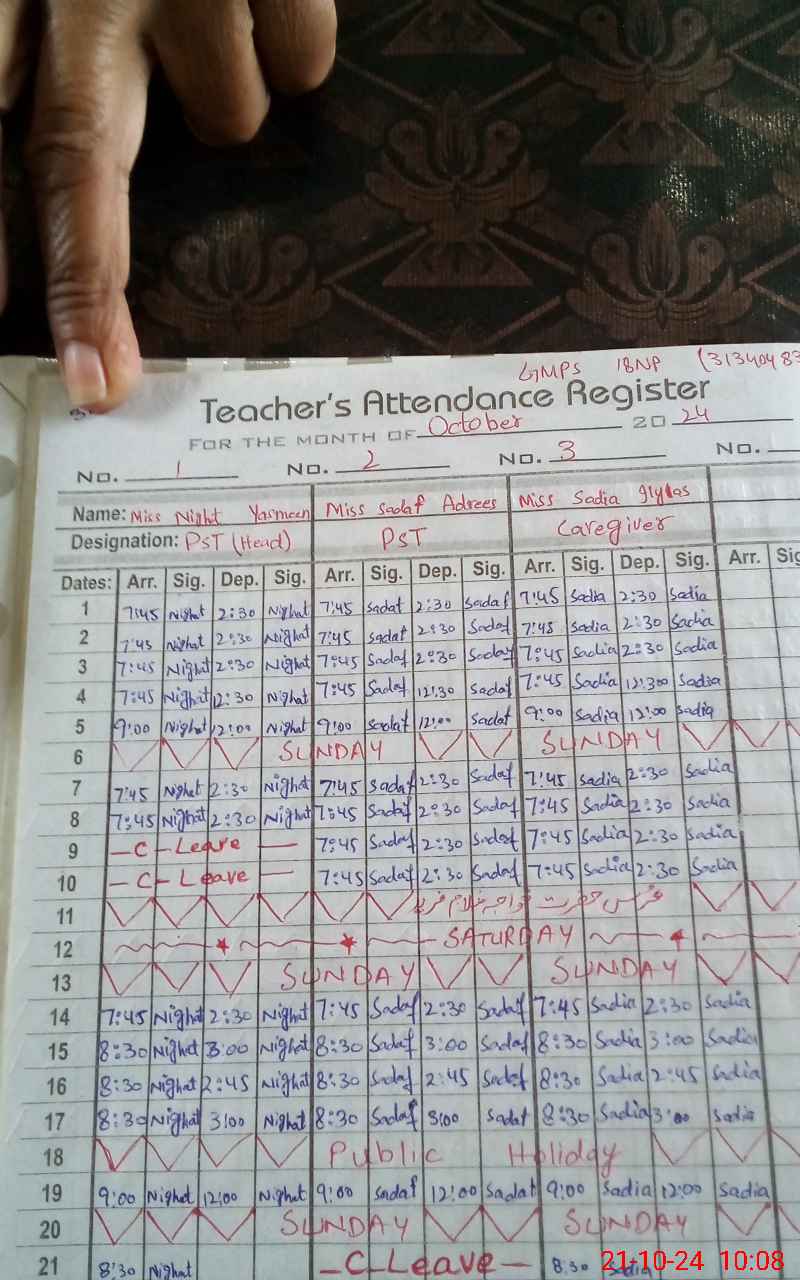 GMPS 18NP (3134048
Teacher's Attendance Register
FOR THE MONTH OF October 20 24
No. 1 No. 2 No. 3 No.
Name: Miss Night Yasmeen Miss Sadaf Adrees Miss Sadia Ilyas
Designation: PST (Head) PST Caregiver
Dates: Arr. Sig. Dep. Sig. Arr. Sig. Dep. Sig. Arr. Sig. Dep. Sig. Arr. Sig
1 7:45 Nighat 2:30 Nighat 7:45 Sadaf 2:30 Sadaf 7:45 Sadia 2:30 Sadia
2 7:45 Nighat 2:30 Nighat 7:45 Sadaf 2:30 Sadaf 7:45 Sadia 2:30 Sadia
3 7:45 Nighat 2:30 Nighat 7:45 Sadaf 2:30 Sadaf 7:45 Sadia 2:30 Sadia
4 7:45 Nighat 12:30 Nighat 7:45 Sadaf 12:30 Sadaf 7:45 Sadia 12:300 Sadia
5 9:00 Nighat 12:00 Nighat 9:00 Sadaf 12:00 Sadaf 9:00 Sadia 12:00 Sadia
6 SUNDAY SUNDAY
7 7:45 Nighat 2:30 Nighat 7:45 Sadaf 2:30 Sadaf 7:45 Sadia 2:30 Sadia
8 7:45 Nighat 2:30 Nighat 7:45 Sadaf 2:30 Sadaf 7:45 Sadia 2:30 Sadia
9 - C - Leave - 7:45 Sadaf 2:30 Sadaf 7:45 Sadia 2:30 Sadia
10 - C - Leave - 7:45 Sadaf 2:30 Sadaf 7:45 Sadia 2:30 Sadia
11 عرس حضرت خواجہ غلام فرید
12 SATURDAY
13 SUNDAY SUNDAY
14 7:45 Nighat 2:30 Nighat 7:45 Sadaf 2:30 Sadaf 7:45 Sadia 2:30 Sadia
15 8:30 Nighat 3:00 Nighat 8:30 Sadaf 3:00 Sadaf 8:30 Sadia 3:00 Sadia
16 8:30 Nighat 2:45 Nighat 8:30 Sadaf 2:45 Sadaf 8:30 Sadia 2:45 Sadia
17 8:30 Nighat 3:00 Nighat 8:30 Sadaf 3:00 Sadaf 8:30 Sadia 3:00 Sadia
18 Public Holiday
19 9:00 Nighat 12:00 Nighat 9:00 Sadaf 12:00 Sadaf 9:00 Sadia 12:00 Sadia
20 SUNDAY SUNDAY
21 8:30 Nighat - C - Leave - 8:30 Sadia
21-10-24 10:08